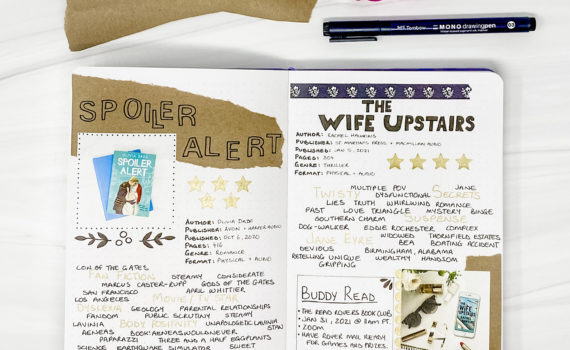 Tombow MONO drawing pen 03
SPOILER
ALERT
OLIVIA DADE
SPOILER
ALERT
AUTHOR: OLIVIA DADE
PUBLISHER: AVON + HARPER AUDIO
PUBLISHED: OCT 6, 2020
PAGES: 416
GENRE: ROMANCE
FORMAT: PHYSICAL + AUDIO
LION OF THE GATES
FAN FICTION STEAMY CONSIDERATE
MARCUS CASTER-RUPP GODS OF THE GATES
SAN FRANCISCO APRIL WHITTIER
LOS ANGELES MOVIE/TV STAR
DYSLEXIA GEOLOGY PARENTAL RELATIONSHIPS
FANDOM PUBLIC SCRUTINY STEAMY
LAVINIA BODY POSITIVITY UNAPOLOGETIC LAVINIA STAN
AENEAS BOOKAENEASWOULDNEVER
PAPARAZZI THREE AND A HALF EGGPLANTS
SCIENCE EARTHQUAKE SIMULATOR SWEET
THE
WIFE UPSTAIRS
AUTHOR: RACHEL HAWKINS
PUBLISHER: ST MARTIN'S PRESS + MACMILLAN AUDIO
PUBLISHED: JAN 5, 2021
PAGES: 304
GENRE: THRILLER
FORMAT: PHYSICAL + AUDIO
MULTIPLE POV JANE
TWISTY DYSFUNCTIONAL SECRETS
LIES TRUTH WHIRLWIND ROMANCE
FAST LOVE TRIANGLE MYSTERY BINGE
SOUTHERN CHARM SUSPENSE
DOG-WALKER EDDIE ROCHESTER COMPLEX
WIDOWED THORNFIELD ESTATES
JANE EYRE BEA BOATING ACCIDENT
DEVIOUS BIRMINGHAM, ALABAMA
RETELLING UNIQUE WEALTHY HANDSOM
GRIPPING
BUDDY READ
• THE READ ROVERS BOOK CLUB
• JAN 31, 2021 @ 8AM PT.
• ZOOM
• HAVE ROVER MAIL READY
FOR GAMES AND PRIZES.
THE WIFE
UPSTAIRS